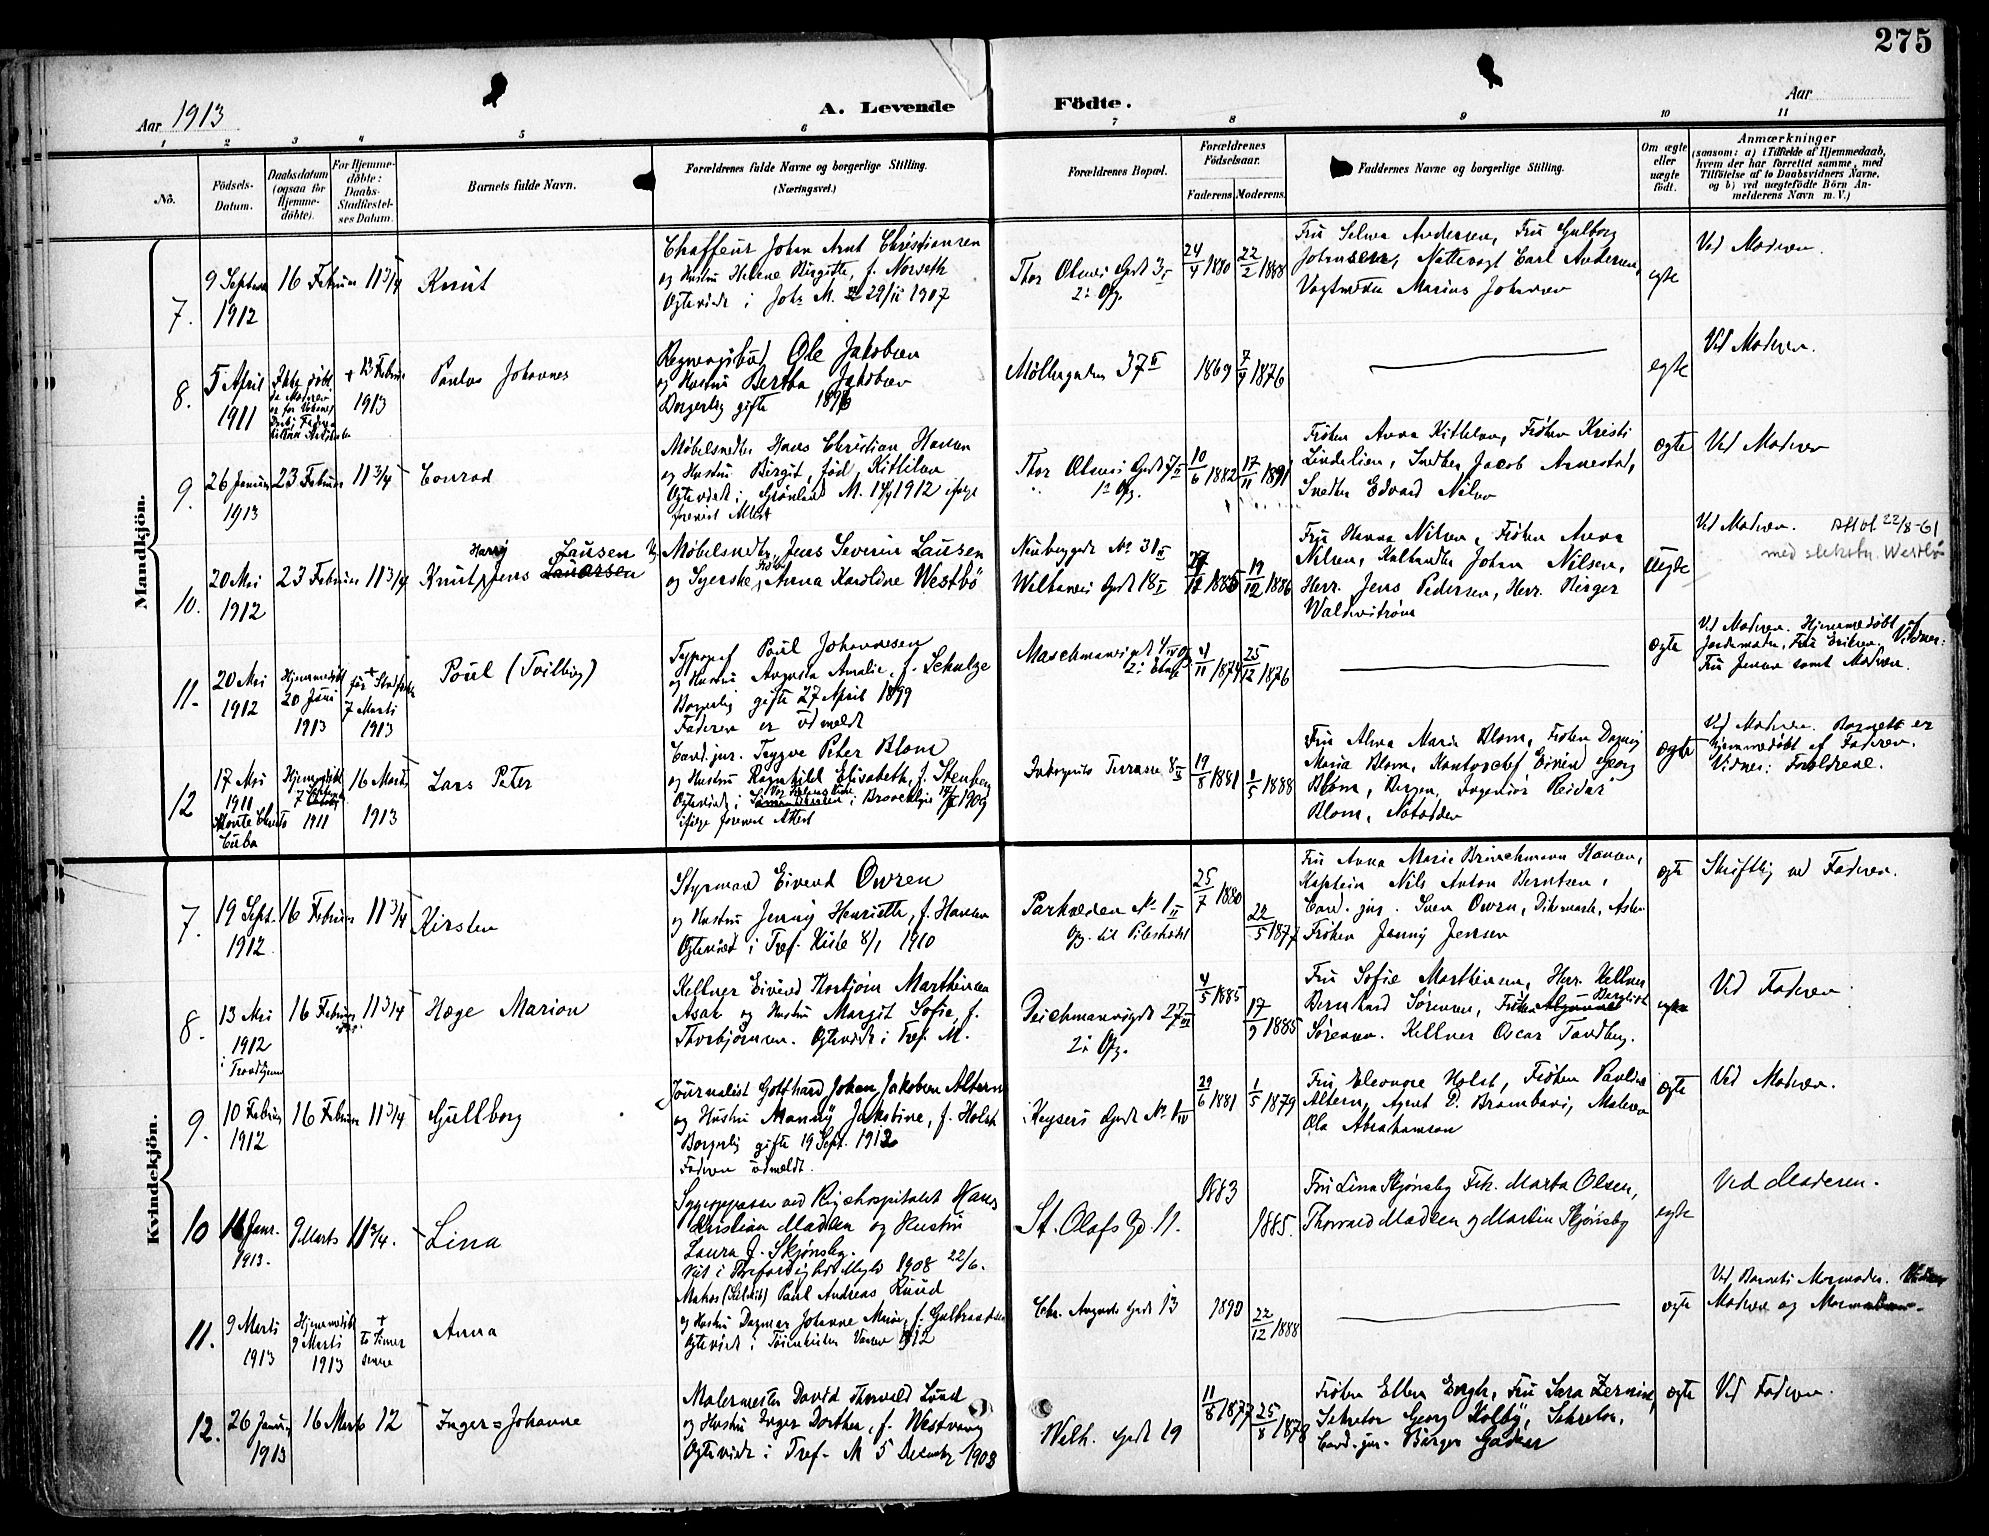 275
Aar 1913
A. Levende Födte.
Aar
1 2 3 4 5 6 7 8 9 10 11
No.
Födsels-Datum.
Daabsdatum (ogsaa for Hjemme-döbte).
For Hjemme-döbte: Daabs-Stadfæstel-ses Datum.
Barnets fulde Navn.
Forældrenes fulde Navne og borgerlige Stilling. (Næringsvei.)
Forældrenes Bopæl.
Forældrenes Födselsaar.
Faderens Moderens.
Faddernes Navne og borgerlige Stilling.
Om ægte eller uægte födt.
Anmærkninger
(saasom: a) i Tilfælde af Hjemmedaab, hvem der har forrettet samme, med Tilföielse af to Daabsvidners Navne, og b) ved uægtefödte Börn An-melderens Navn m. V.)
Mandkjön.
7. 9 Septbr 1912
16 Februar
11 3/4
Knut
Chaffeur Johan Arnt Christiansen
og Hustru Helene Birgitte, f. Norseth
Ægteviede i Joh. M. 29/11 1907
Thor Olsens Gade 3
2. Opg.
24/4 1880
22/2 1888
Fru Selma Andersen, Fru Gulborg
Johnsen, Nattevagt Carl Andersen,
Marius Johnsen
egte
Ved Moderen.
8. 5 April 1911
+ 13 Februar 1913
Paulus Johannes
Ole Jakobsen
og Hustru Bertha Jakobsen
Borgerlig gifte 1896
Möllergaden 37 II
1869
7/9 1876
egte
Ved Moderen.
9. 26 Januar 1913
23 Februar
11 3/4
Conrad
Møbelsnedker Hans Christian Hansen
og Hustru Birgit, fød Kittilsen
Ægteviede i Grønland M. 14/4 1912 ifølge
forevist Attest
Thor Olsens Gade 7 II
1. Opg.
10/6 1882
17/11 1891
Frøken Anna Kittilsen, Frøken Kristi
Lindelien, Snedker Jacob Arnestad,
Snedker Edvard Nilsen
ægte
Ved Moderen
10. 20 Mai 1912
23 Februar
11 3/4
Knut Harry Jens Lausen
Møbelsnedker Jens Severin Lausen
og Syerske, Frøken Anna Karoline Westbö
Nübyggd. No 31 II
Gade 18 I
1885
19/12 1886
Fru Hanna Nilsen, Frøken Anna
Nilsen, Johan Nilsen,
Herr. Jens Pedersen, Herr. Birger
Waldenström
uegte
Ved Moderen. Att ut 22/8-61
med slektsn. Westbö
11. 20 Mai 1912
Hjemmedöbt 20 Juni 1913
+ før Stadfæst. 7 Marts 1913
Poul (Tvilling)
Typograf Poul Johannesen
og Hustru Augusta Amalie, f. Schulze
Borgerlig gifte 27 April 1899
Faderen er udmeldt
4/11 1874
25/12 1876
ægte
Ved Moderen. Hjemmedöbt af
Jordemoder, Fru Eriksen. Vidner:
Fru Jensen samt Moderen.
12 17 Mai 1911
Monte Christo
Cuba
Hjemmedöbt 7 1911
16 Marts 1913
Lars Peter
Cand. jur. Trygve Peter Blom
og Hustru Ragnhild Elisabeth, f. Stenberg
Ægteviede i Brooklyn 1909
ifølge forevist Attest
Inkognito Terrasse 8 II
19/8 1881
1/5 1888
Fru Alma Marie Blom, Frøken Dagny
Maria Blom, Kontorchef Eivind Georg
Blom, Bergen, Ingeniör Reidar
Blom, Notodden
ægte
Ved Moderen. Barnet er
hjemmedöbt af Faderen.
Vidner: Forældrene.
Kvindekjön.
7. 19 Sept. 1912
16 Februar
11 3/4
Kirsten
Styrmand Eivind Owren
og Hustru Jenny Henriette, f. Hansen
Ægteviet i Tref. Kirke 8/1 1910
Parkveien No 1 II
Opg. til Pilestrædet
25/7 1880
22/5 1877
Fru Anna Marie Brinchmann Hansen,
Kaptein Nils Anton Berntsen,
Cand. jur. Sven Owren, Dikemark, Asker
Frøken Jenny Jensen
ægte
Skriftlig ved Faderen.
8. 13 Mai 1912
i Trondhjem
16 Februar
11 3/4
Hæge Marion
Kellner Eivind Thorbjörn Marthinsen
Asak og Hustru Margit Sofie, f.
Thorbjörnsen. Ægteviede i Tref. M.
Deichmannsgd 27 III
2. Opg.
4/5 1885
17/9 1885
Fru Sofie Marthinsen, Herr Kellner
Bernhard Sörensen, Frøken Bergliot
Sörensen. Kellner Oscar Tandberg.
egte
Ved Faderen
9. 10 Februar 1912
16 Februar
11 3/4
Gullborg
Journalist Gotthard Johan Jakobsen Altern
og Hustru Manny Jakobine, f. Holst
Borgerlig gifte 19 Sept. 1912
Faderen udmeldt.
Keysers Gade No 1 IV
29/6 1881
1/5 1879
Fru Eleonore Holst, Frøken Pauline
Altern, Agent D. Brambani, Maleren
Ola Abrahamson
ægte
Ved Moderen.
10 16 Janr. 1913.
9 Marts
11 3/4.
Lina
Sygepasser ved Rigshospitalet Hans
Kristian Madsen og Hustru
Laura f. Skjønsby.
Viet i Trefoldighed 1908 22/6.
St. Olafs Gd 11.
1883
1885.
Fru Lina Skjønsby Frk. Marta Olsen,
Thorvald Madsen og Martin Skjønsby
egte
Ved Moderen.
11. 9 Marts 1913
Hjemmedöbt 9 Marts 1913
+ to Timer senere
Anna
Paul Andreas Ruud
og Hustru Dagmar Johanne Marie, f. Gulbrandsen
Ægteviede i 1912
Chr. Augusts Gade 13
1890
22/12 1888
ægte
Ved Barnets Mormoder.
Moderen og Mormoderen.
12. 26 Januar 1913
16 Marts
12
Inger=Johanne
Malermester David Thorvald Lund
og Hustru Inger Dorthea, f. Westvang
Ægteviede i Tref. M 5 December 1903
Welh. Gade 19
11/8 1877
25/8 1878
Frøken Ellen Bergh, Fru Sara Zernichow,
Sekretær Georg Kolby, Sekretær,
Cand. jur. Birger Gadner
ægte
Ved Faderen.